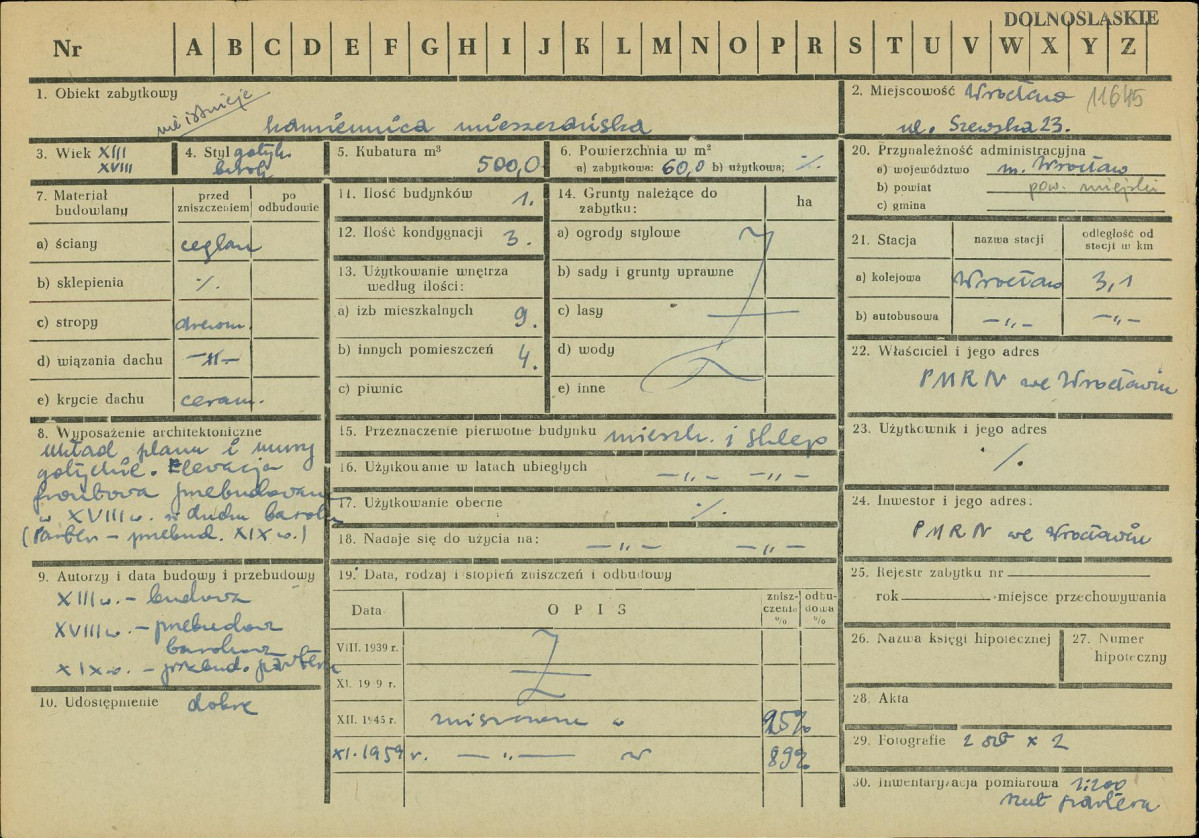 DOLNOŚLĄSKIE
Nr A B C D E F G H I J K L M N O P R S T U V W X Y Z
1. Obiekt zabytkowy
nie istnieje
kamienica mieszczańska
2. Miejscowość Wrocław 11645
ul. Szewska 23.
3. Wiek XIII
XVIII
4. Styl gotyk
barok
5. Kubatura m³
500,0
6. Powierzchnia w m²
a) zabytkowa: 60,0 b) użytkowa; ./.
7. Materiał budowlany
przed zniszczeniem
po odbudowie
a) ściany ceglan
b) sklepienia ./.
c) stropy drewn.
d) wiązania dachu —"—
e) krycie dachu ceram.
8. Wyposażenie architektoniczne
układ planu i mury
gotyckie. Elewacja
frontowa przebudowana
w XVIII w. w duchu baroku
(Parter – przebud. XIX w.)
9. Autorzy i data budowy i przebudowy
XIII w. – budowa
XVIII w. – przebudowa
barokowa
XIX w. – przebud. parteru
10. Udostępnienie dobre
11. Ilość budynków 1.
12. Ilość kondygnacji 3.
13. Użytkowanie wnętrza
według ilości:
a) izb mieszkalnych 9.
b) innych pomieszczeń 4.
c) piwnic
14. Grunty należące do
zabytku:
ha
a) ogrody stylowe
b) sady i grunty uprawne
c) lasy
d) wody
e) inne
15. Przeznaczenie pierwotne budynku mieszk. i sklep
16. Użytkowanie w latach ubiegłych —"— —"—
17. Użytkowanie obecne ./.
18. Nadaje się do użycia na: —"— —"—
19. Data, rodzaj i stopień zniszczeń i odbudowy
Data
OPIS
zniszczenia %
odbudowa %
VIII. 1939 r.
XI. 19 9 r.
XII. 1945 r. zniszczenie w 25%
XI. 1959 r. —"— w 89%
20. Przynależność administracyjna
a) województwo m. Wrocław
b) powiat pow. miejski
c) gmina
21. Stacja
nazwa stacji
odległość od
stacji w km
a) kolejowa Wrocław 3,1
b) autobusowa —"— —"—
22. Właściciel i jego adres
PMRN we Wrocławiu
23. Użytkownik i jego adres
./.
24. Inwestor i jego adres:
PMRN we Wrocławiu
25. Rejestr zabytku nr
rok miejsce przechowywania
26. Nazwa księgi hipotecznej
27. Numer
hipoteczny
28. Akta
29. Fotografie
30. Inwentaryzacja pomiarowa 1:200
rzut parteru